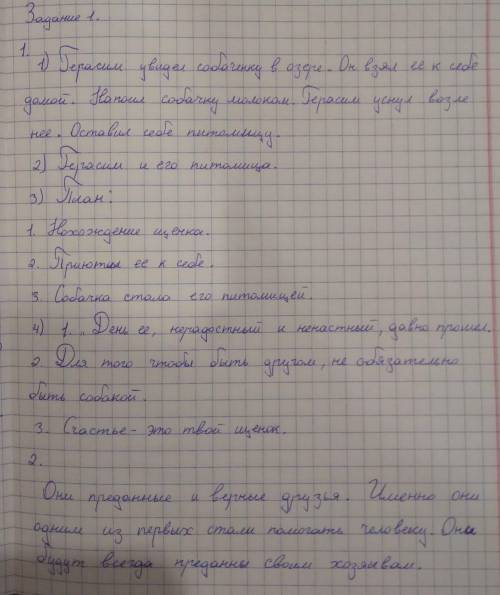 Задание 1.
1.
1) Герасим увидел собаченку в озере. Он взял ее к себе
домой. Напоил собачку молоком. Герасим уснул возле
нее. Оставил себе питомицу.
2) Герасим и его питомица.
3) План:
1. Нохождение щенка.
2. Приютил ее к себе.
3. Собачка стала его питомицей.
4) 1. „День ее, нерадостный и ненастный, давно прошел.
2. Для того чтобы быть другом, не обязательно
быть собакой.
3. Счастье - это твой щенок.
2.
Они преданные и верные друзья. Именно они
одним из первых стали помогать человеку. Они
будут всегда преданны своим хозяевам.